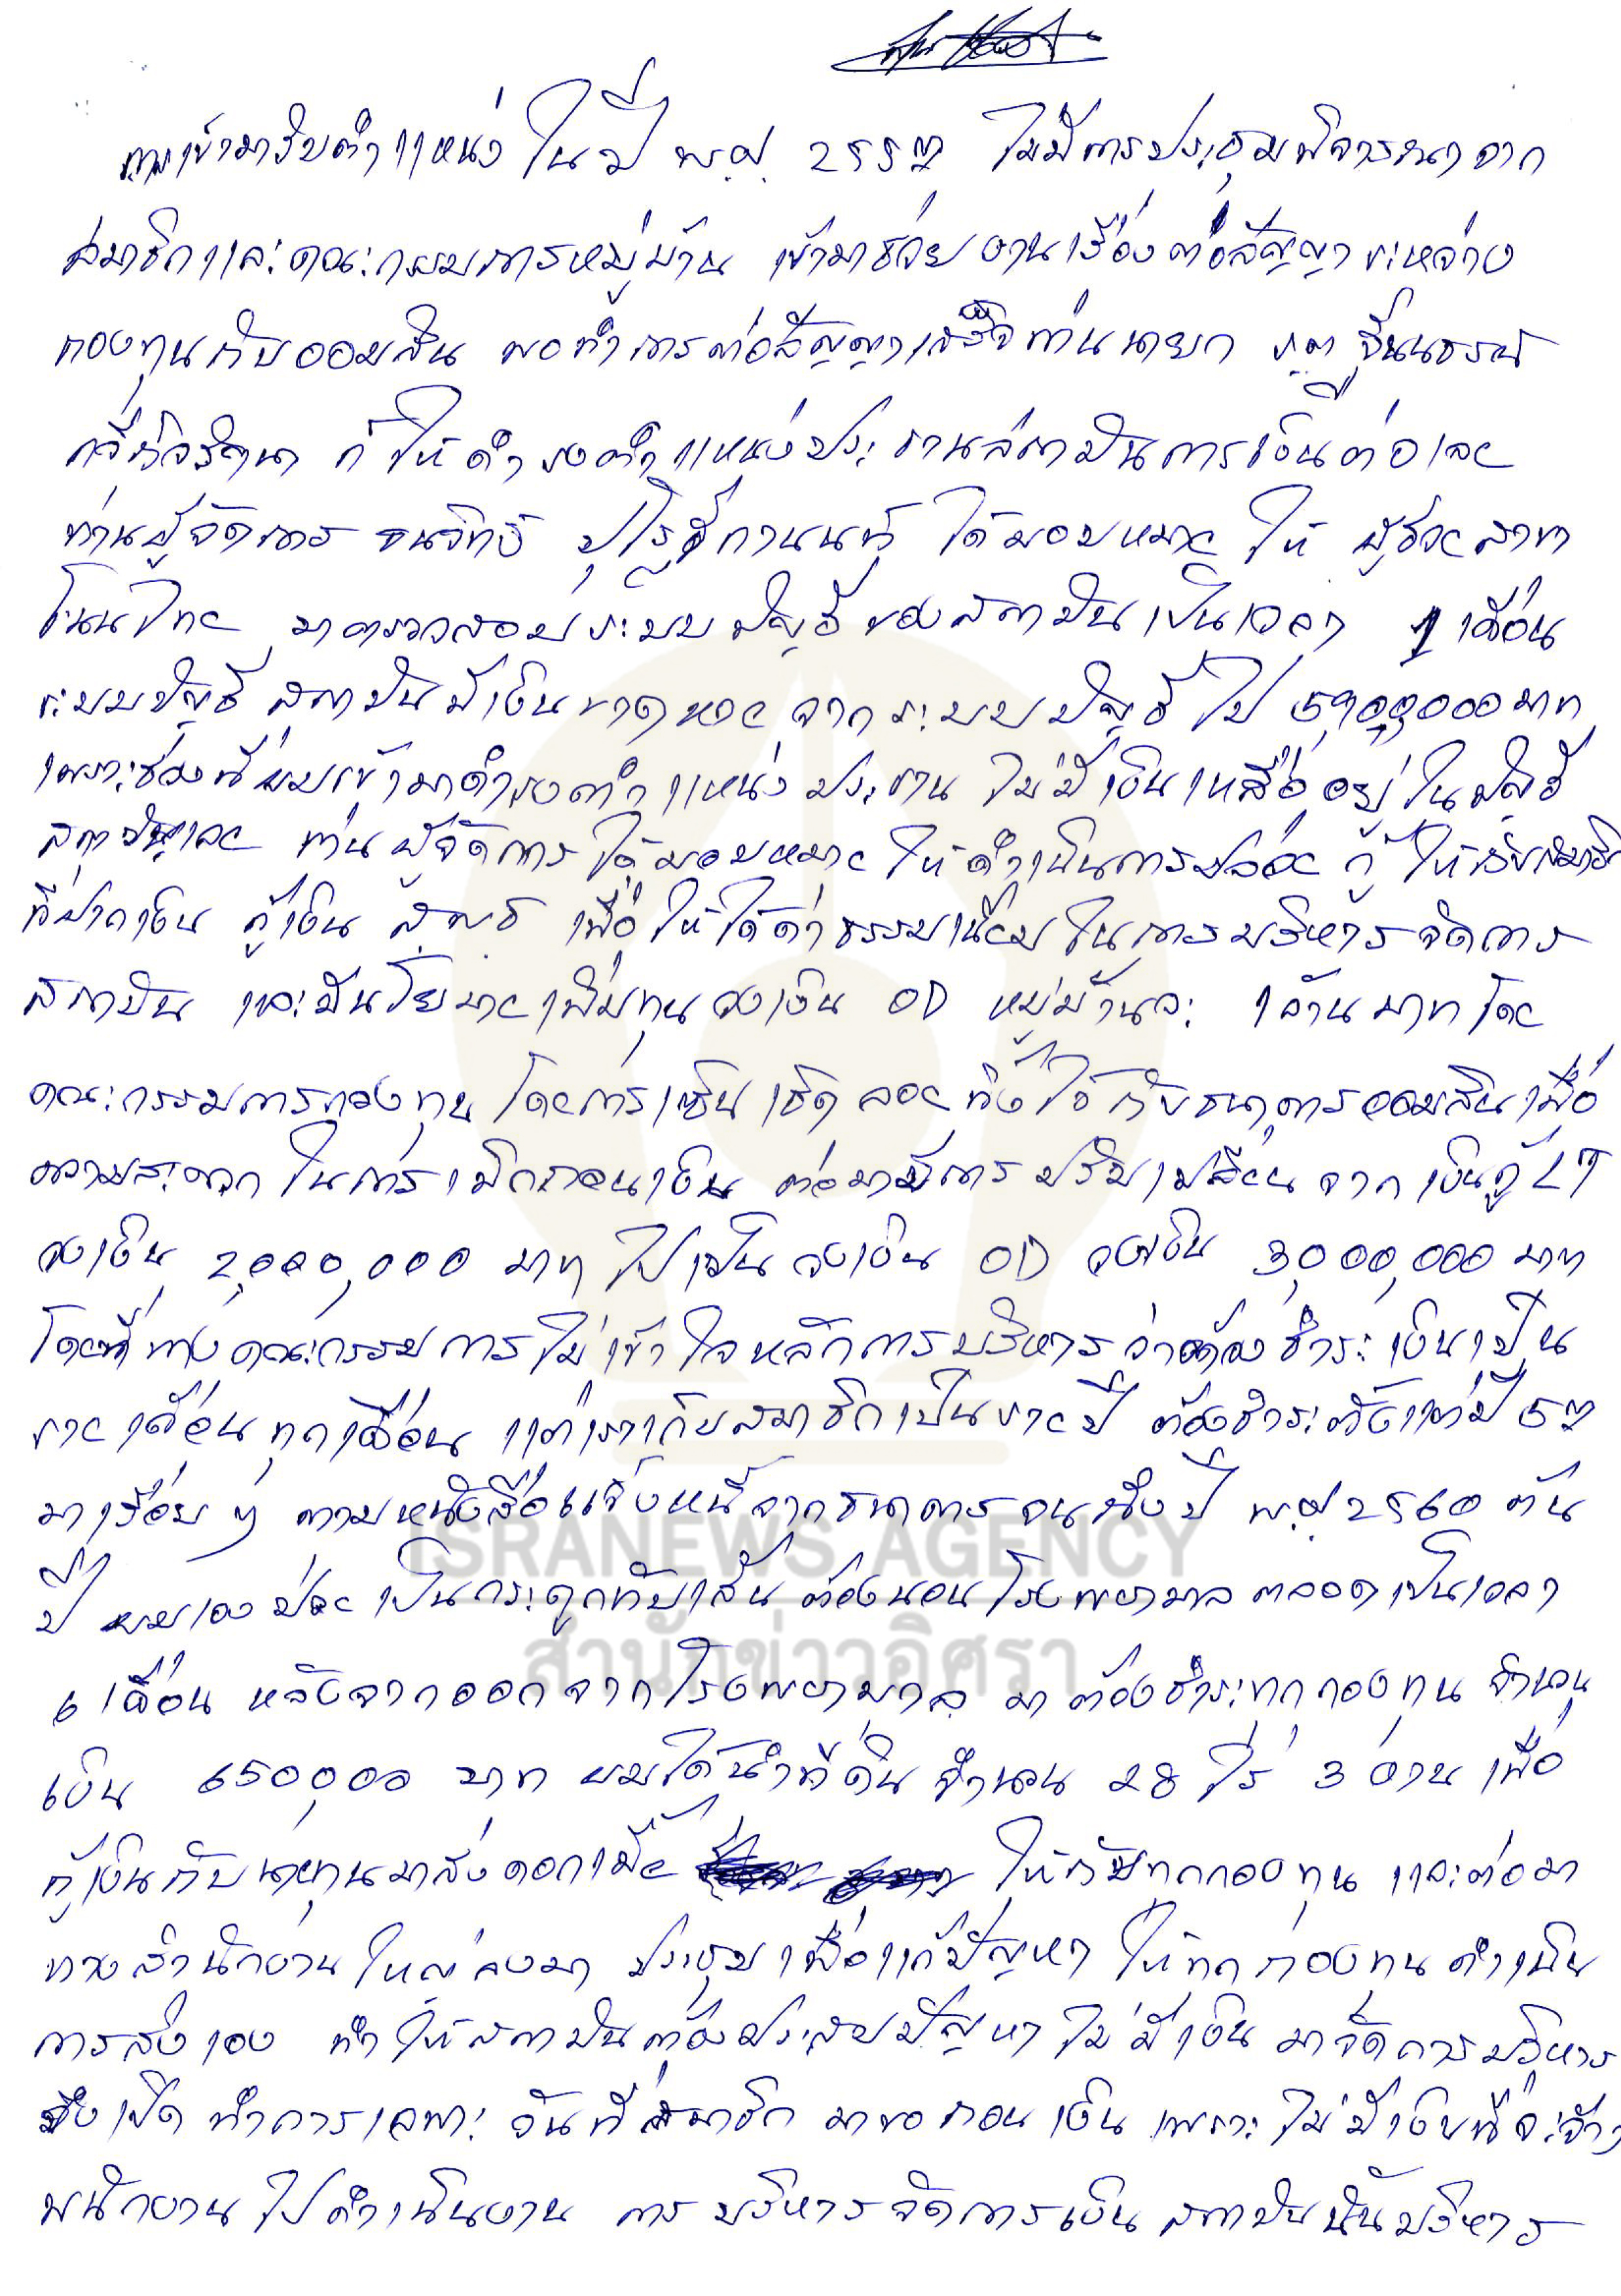 การเข้ามารับตำแหน่ง ในปี พ.ศ. 2557 ไม่มีการประชุมพิจารณาจาก
สมาชิกและคณะกรรมการหมู่บ้าน เข้ามาช่วยงานเรื่องต่อสัญญาระหว่าง
กองทุนกับออมสิน พอทำการต่อสัญญาเสร็จท่านนายก
ก็ให้ดำรงตำแหน่งประธานสถาบันการเงินต่อเลย
ท่านผู้จัดการ ได้มอบหมาย ให้ ผู้ช่วยสาขา
โนนไทย มาตรวจสอบระบบบัญชีของสถาบันเป็นเวลา 1 เดือน
ระบบบัญชี สถาบันมีเงินขาดหาย จากระบบบัญชี ไป 5,900,000 บาท
เพราะช่วงที่ผมเข้ามาดำรงตำแหน่ง ประธาน ไม่มีเงินเหลืออยู่ในบัญชี
สถาบันเลย ท่านผู้จัดการได้มอบหมาย ให้ดำเนินการปล่อย กู้ ให้กับสมาชิก
ที่ฝากเงิน กู้เงิน เพื่อให้ได้ค่าธรรมเนียมในการบริหารจัดการ
สถาบัน และมีนโยบายเพิ่มทุนวงเงิน OD หมู่บ้านละ 1 ล้านบาทโดย
คณะกรรมการกองทุน โดยการเซ็นเช็คลอยทิ้งไว้กับธนาคารออมสินเพื่อ
ความสะดวกในการเบิกถอนเงิน ต่อมามีการปรับเปลี่ยนจากเงินกู้ LT
วงเงิน 2,000,000 บาท ไปเป็นวงเงิน OD วงเงิน 3,000,000 บาท
โดยที่ทางคณะกรรมการไม่เข้าใจหลักการบริหารว่าต้องชำระเงินเป็น
รายเดือนทุกเดือน แต่เราเก็บสมาชิกเป็นรายปี ต้องชำระตั้งแต่ปี 57
มาเรื่อย ๆ ตามหนังสือแจ้งหนี้จากธนาคารจนถึงปี พ.ศ. 2560 ต้น
ปี ผมเองป่วยเป็นกระดูกทับเส้น ต้องนอนโรงพยาบาลตลอดเป็นเวลา
6 เดือน หลังจากออกจากโรงพยาบาล มาต้องชำระทุกกองทุน จำนวน
เงิน 650,000 บาท ผมได้นำที่ดิน จำนวน 28 ไร่ 3 งาน เพื่อ
กู้เงินกับนายทุนมาส่งดอกเบี้ย ให้กับทุกกองทุน และต่อมา
ทางสำนักงานใหญ่ลงมา ประชุมเพื่อแก้ปัญหา ให้ทุกกองทุนดำเนิน
การส่งเอง ทำให้สถาบันต้องประสบปัญหาไม่มีเงินมาจัดการบริหาร
จึงเปิด ทำการเฉพาะ วันที่สมาชิก มาขอถอนเงิน เพราะไม่มีเงินที่จะจ้าง
พนักงานไปดำเนินงาน การบริหารจัดการเงิน สถาบันนั้นบริหาร
ISRANEWS AGENCY
สำนักข่าวอิศรา